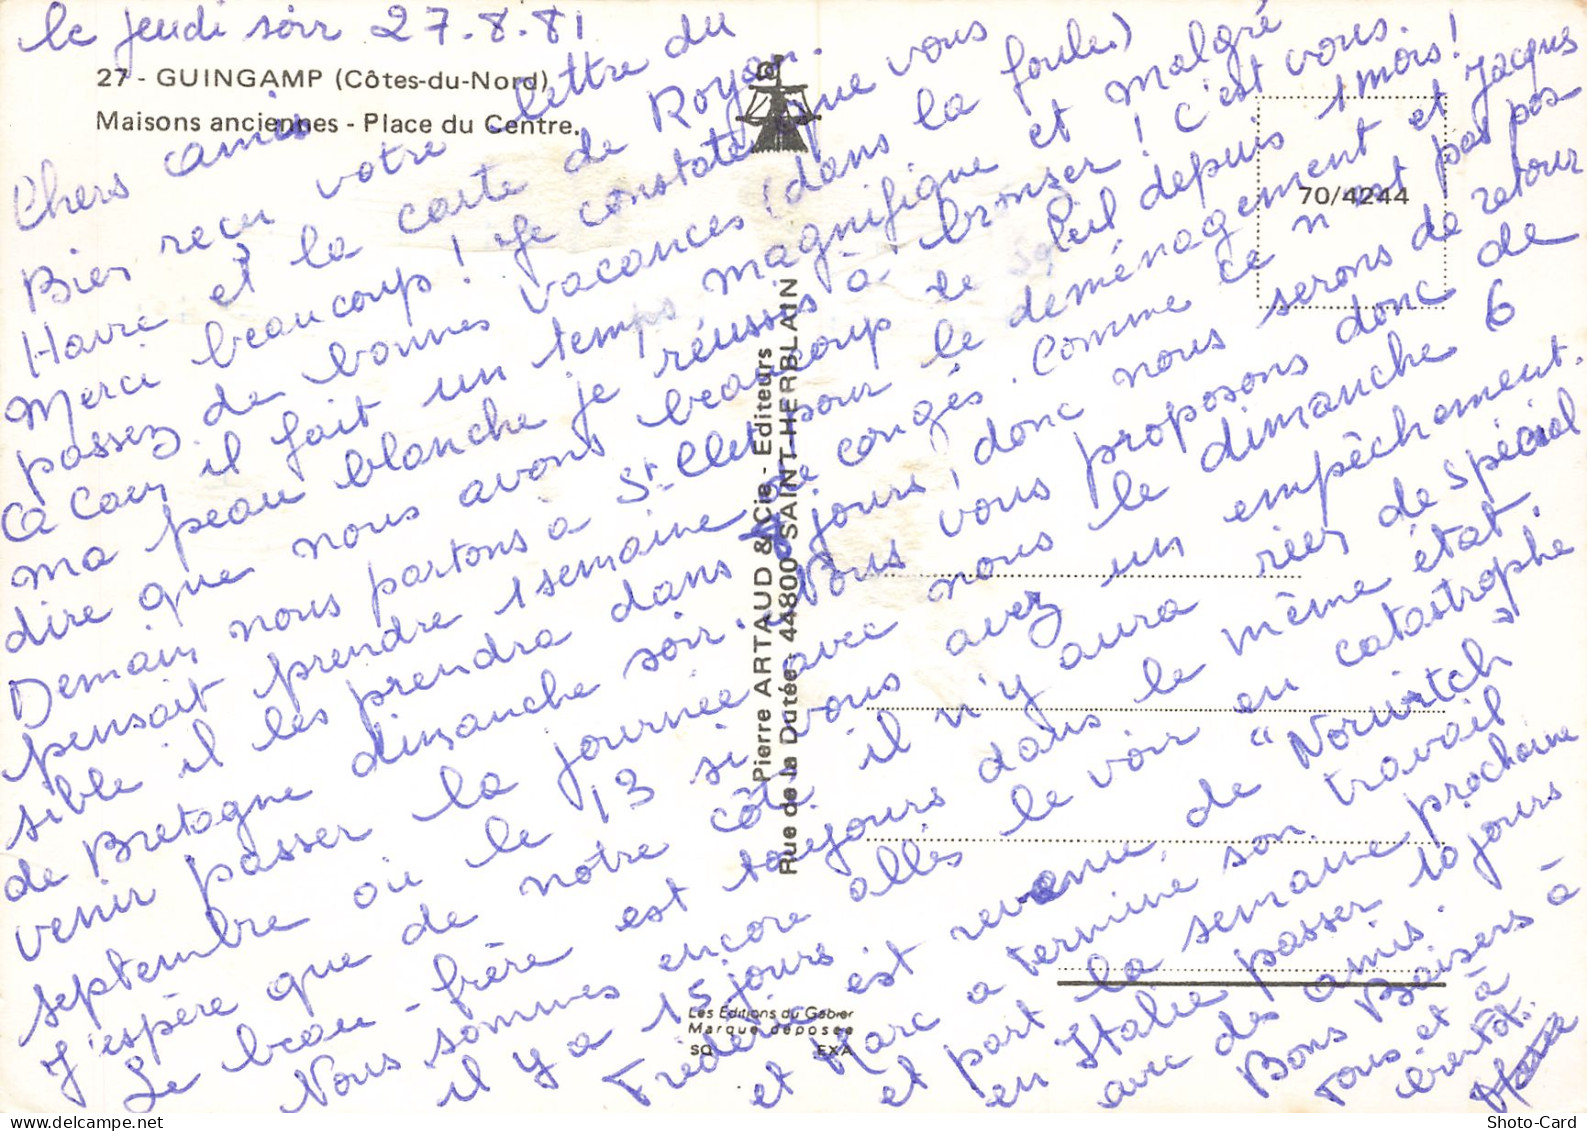 le jeudi soir 27.8.81
27 - GUINGAMP (Côtes-du-Nord)
Maisons anciennes - Place du Centre.
Chers amis
Bien reçu votre lettre du
Havre et la carte de Royan.
Merci beaucoup! Je constate que vous
passez de bonnes vacances (dans la foule)
A Caen il fait un temps magnifique et malgré
ma peau blanche je réussis à bronzer! C'est vous
dire que nous avons beaucoup le soleil depuis 1 mois!
Demain nous partons à St Clet pour le déménagement et Jacques
pensait prendre 1 semaine de congés. Comme ce n'est pas pos-
sible il les prendra dans 8 jours, donc nous serons de retour
de Bretagne dimanche soir. Nous vous proposons donc de
venir passer la journée avec nous le dimanche 6
septembre ou le 13 si vous avez un empêchement.
J'espère que de notre côté il n'y aura rien de spécial
Le beau-frère est toujours dans le même état.
Nous sommes encore allés le voir en catastrophe
il y a 15 jours
Frédéric est revenu de "Norwitch"
et Marc a terminé son travail
et part la semaine prochaine
en Italie passer 10 jours
avec des amis.
Bons Baisers à
tous et à
bientôt.
70/4244
Pierre ARTAUD & Cie - Editeurs
Rue de la Dutée - 44800 SAINT-HERBLAIN
Les Editions du Gabier
Marque déposée
SQ EXA
Shoto-Card